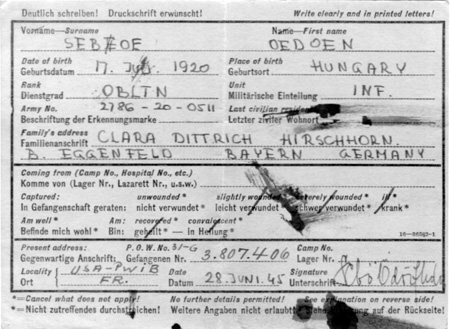 Deutlich schreiben! Druckschrift erwünscht! Write clearly and in printed letters!
Vorname—Surname Name—First name
OEDOEN
Date of birth Place of birth
Geburtsdatum 17. 1920 Geburtsort HUNGARY
Rank Unit
Dienstgrad OBLTN Militärische Einteilung INF.
Army No. 2786-20-0511 Last civilian
Beschriftung der Erkennungsmarke Letzter ziviler Wohnort
Family's address
Familienanschrift CLARA DITTRICH HIRSCHHORN.
B. EGGENFELD BAYERN GERMANY
Coming from (Camp No., Hospital No., etc.)
Komme von (Lager Nr., Lazarett Nr., u.s.w.)
Captured: unwounded* slightly wounded* severely wounded* ill*
In Gefangenschaft geraten: nicht verwundet* leicht verwundet* schwer verwundet* krank*
Am well* Am: recovered* convalescent*
Befinde mich wohl* Bin: geheilt* — in Heilung*
Present address: P.O.W. No. 31-G Camp No.
Gegenwärtige Anschrift: Gefangenen Nr. 3.807.406 Lager Nr.
Locality USA-PWIB Date Signature
Ort FR. Datum 28.JUNI.45 Unterschrift
*=Cancel what does not apply! No further details permitted! See explanation on reverse side!
*=Nicht zutreffendes durchstreichen! Weitere Angaben nicht erlaubt! auf der Rückseite!